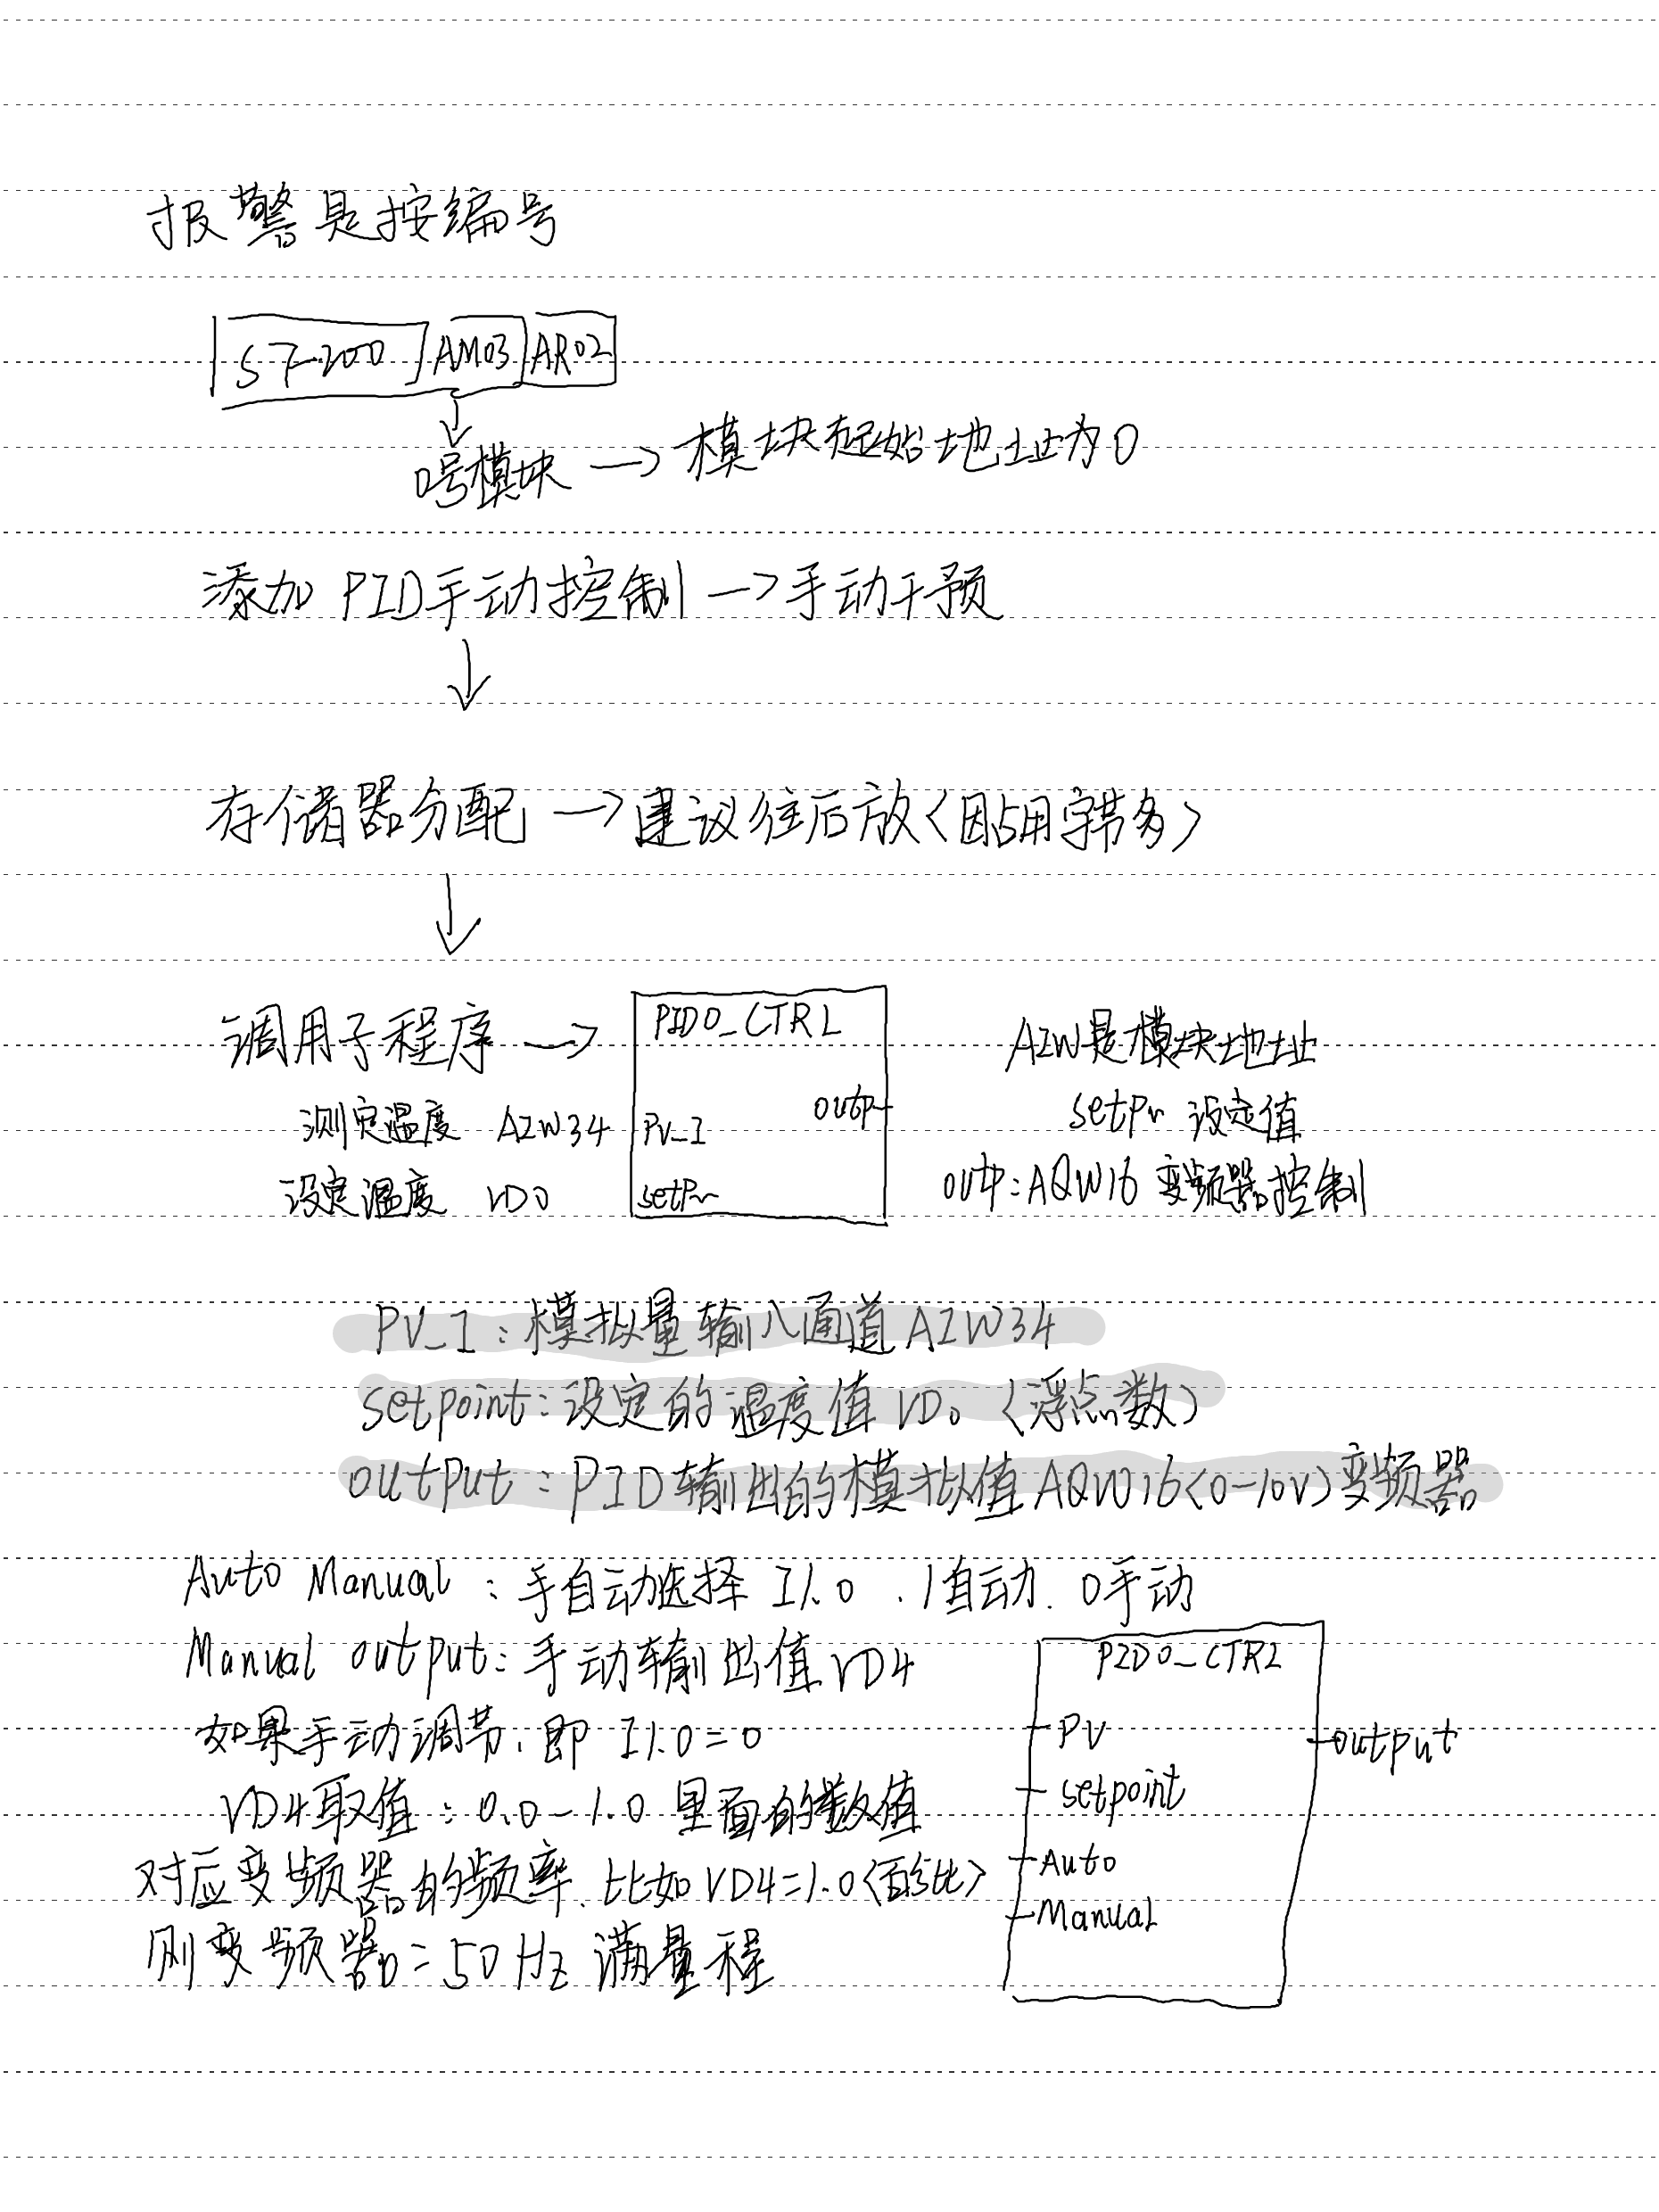 报警是按编号
S7-200 AM03 AR02
0号模块 → 模块起始地址为0
添加PID手动控制 → 手动干预
存储器分配 → 建议往后放<因占用字节多>
调用子程序 → PID0_CTRL
AIW是模块地址
outp
测定温度 AIW34 PV_I
setPr 设定值
设定温度 VD0 setPr
outp:AQW16 变频器控制
PV_I:模拟量输入通道AIW34
setpoint:设定的温度值VD0<浮点数>
output:PID输出的模拟值AQW16<0-10V>变频器
Auto Manual:手自动选择 I1.0 .1自动. 0手动
Manual output:手动输出值VD4
PID0_CTRL
如果手动调节,即I1.0=0
PV
output
VD4取值:0.0-1.0里面的数值
setpoint
对应变频器的频率.比如VD4=1.0<百分比>
Auto
Manual
则变频器=50Hz满量程